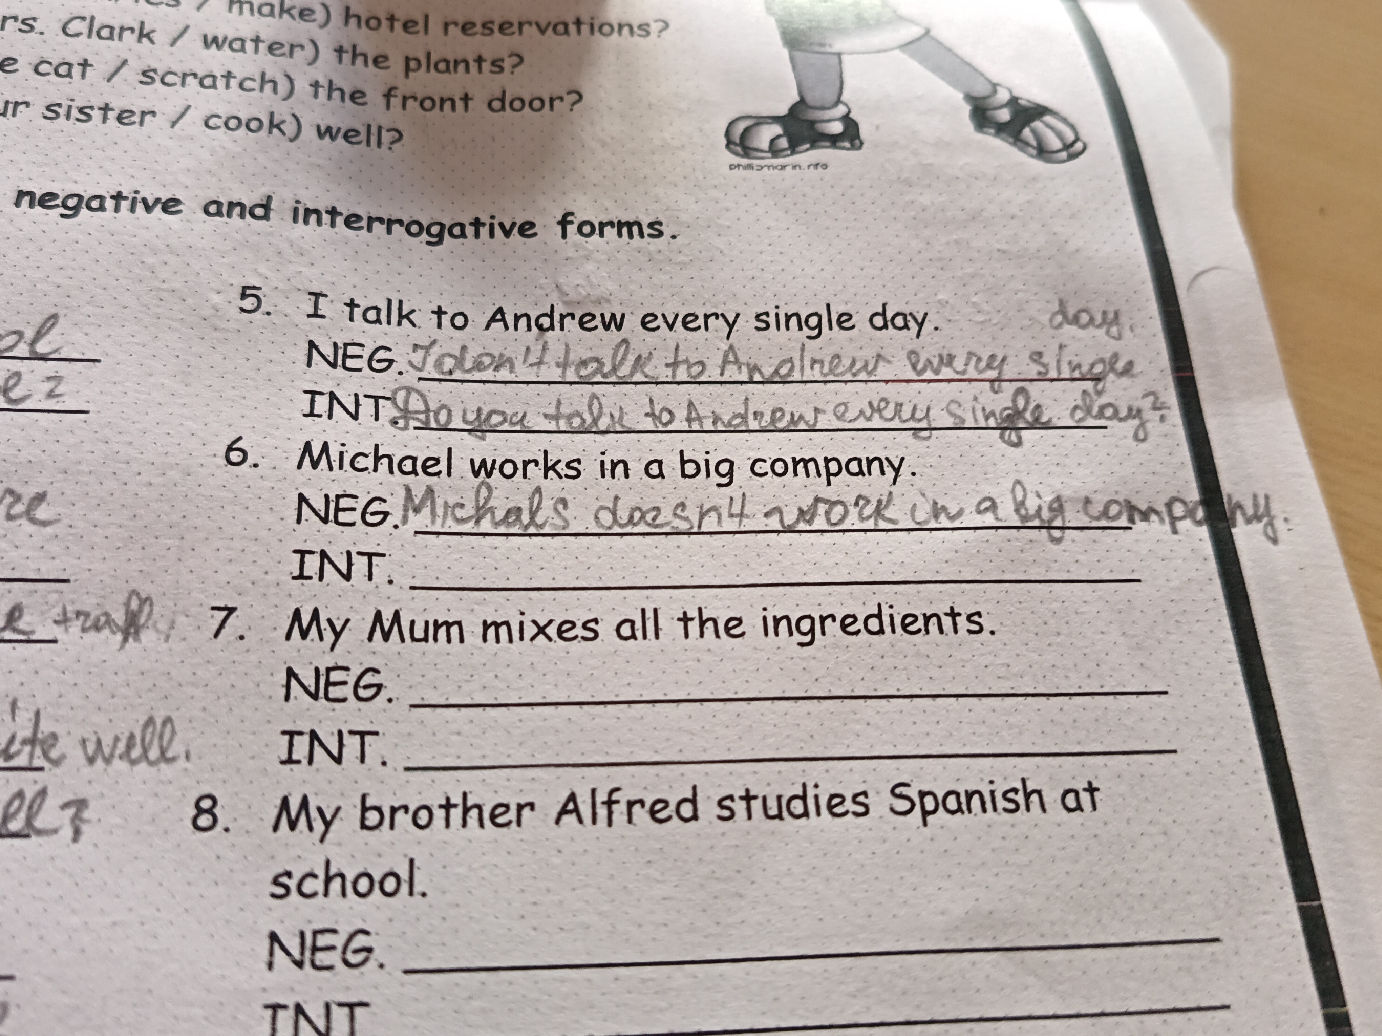 / make) hotel reservations?
rs. Clark / water) the plants?
e cat / scratch) the front door?
ur sister / cook) well?
phillipmartin.info
negative and interrogative forms.
5. I talk to Andrew every single day.
day.
NEG. I don't talk to Andrew every single
INT. Do you talk to Andrew every single day?
6. Michael works in a big company.
NEG. Michals doesn't work in a big company.
INT.
re
e traff
7. My Mum mixes all the ingredients.
NEG.
ite well.
INT.
ell?
8. My brother Alfred studies Spanish at
school.
NEG.
INT